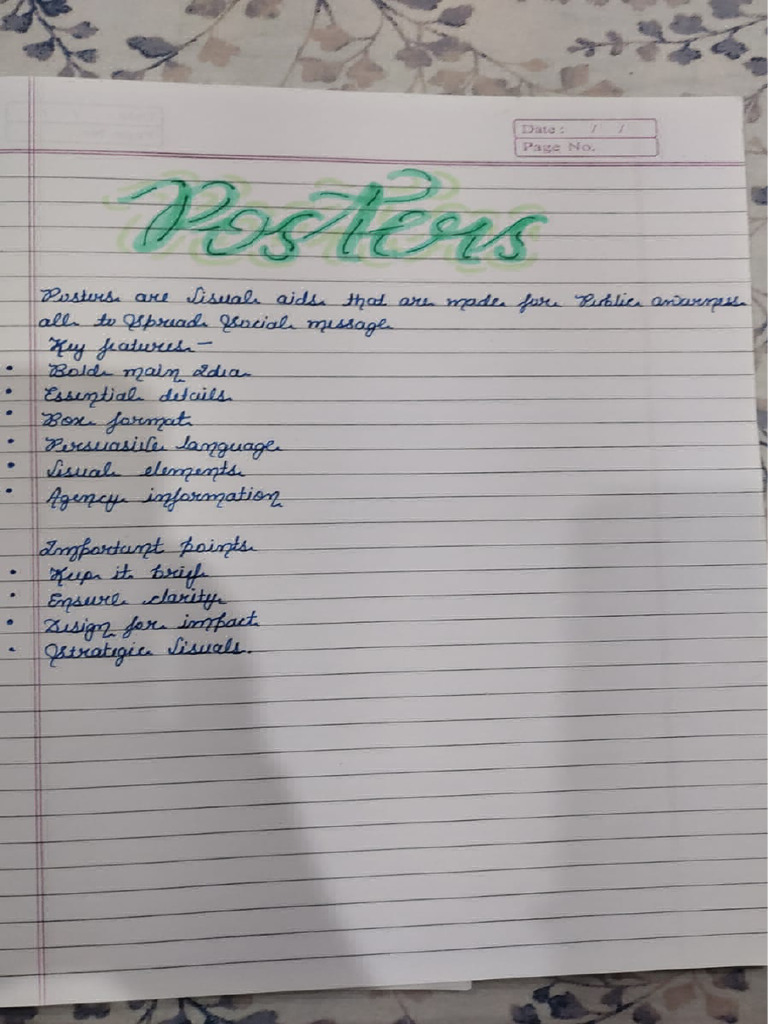 Date : / /
Page No.
Posters
Posters are Visual aids that are made for Public awarness
all to Spread Social message
Key features -
• Bold main Idea
• Essential details
• Box format
• Persuasive language
• Visual elements
• Agency information
Important points
• Keep it brief
• Ensure clarity
• Design for impact
• Strategic Visuals.